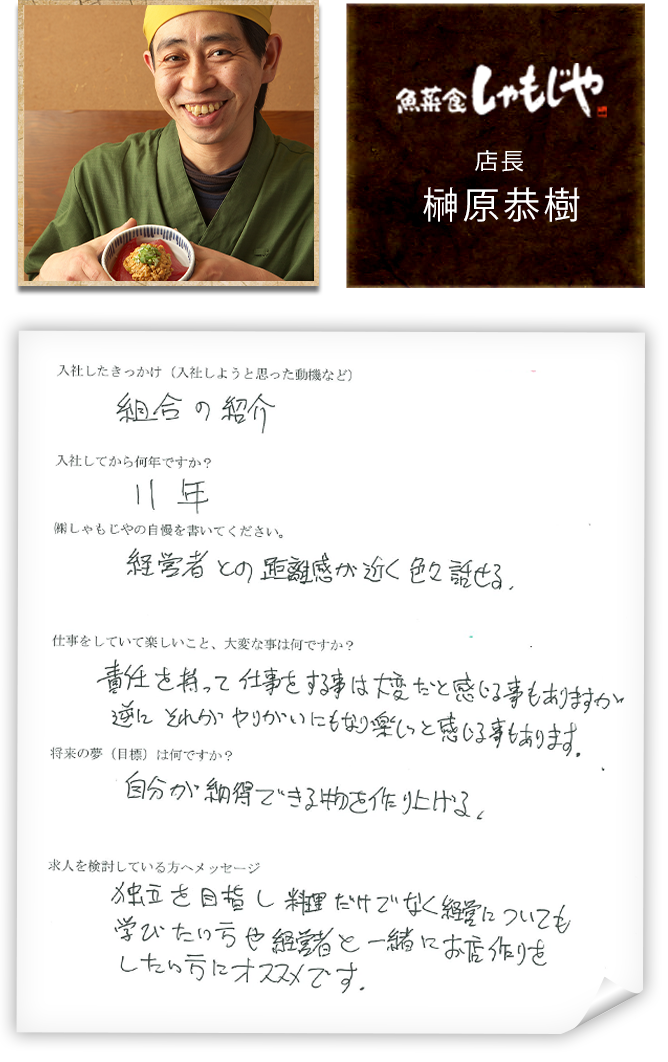 魚菜食 しゃもじや
店長
榊原恭樹
入社したきっかけ（入社しようと思った動機など）
組合の紹介
入社してから何年ですか？
11年
㈱しゃもじやの自慢を書いてください。
経営者との距離感が近く色々話せる。
仕事をしていて楽しいこと、大変な事は何ですか？
責任を持って仕事をする事は大変だと感じる事もありますが
逆にそれがやりがいにもなり楽しいと感じる事もあります。
将来の夢（目標）は何ですか？
自分が納得できる物を作り上げる。
求人を検討している方へメッセージ
独立を目指し料理だけでなく経営についても
学びたい方や経営者と一緒にお店作りを
したい方にオススメです。